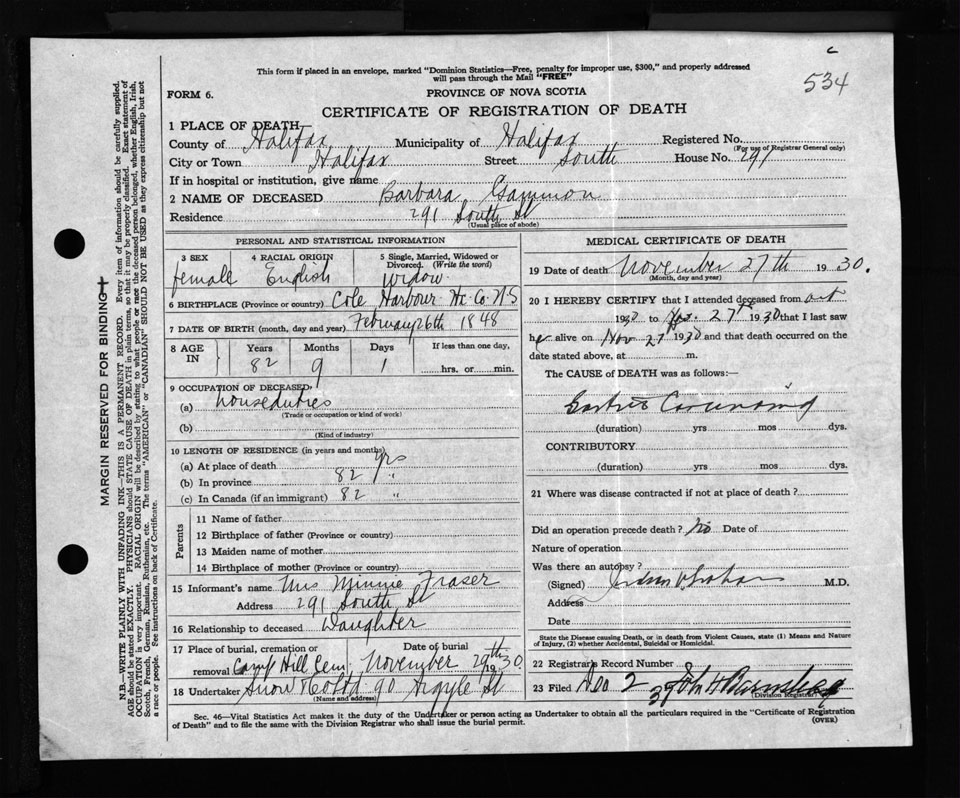 c
534
This form if placed in an envelope, marked "Dominion Statistics—Free, penalty for improper use, $300," and properly addressed
will pass through the Mail "FREE"
FORM 6.
PROVINCE OF NOVA SCOTIA
CERTIFICATE OF REGISTRATION OF DEATH
1 PLACE OF DEATH—
County of Halifax Municipality of Halifax Registered No.
(For use of Registrar General only)
City or Town Halifax Street South House No. 291
If in hospital or institution, give name
2 NAME OF DECEASED Barbara Gammon
Residence 291 South St
(Usual place of abode)
PERSONAL AND STATISTICAL INFORMATION
3 SEX 4 RACIAL ORIGIN 5 Single, Married, Widowed or
Divorced. (Write the word)
female English Widow
6 BIRTHPLACE (Province or country) Cole Harbour Hx. Co. N S
7 DATE OF BIRTH (month, day and year) February 26th 1848
8 AGE IN Years Months Days If less than one day,
82 9 1 hrs. or min.
9 OCCUPATION OF DECEASED,
(a) housedutres
(Trade or occupation or kind of work)
(b)
(Kind of industry)
10 LENGTH OF RESIDENCE (in years and months)
(a) At place of death yrs
(b) In province 82 "
(c) In Canada (if an immigrant) 82 "
Parents
11 Name of father
12 Birthplace of father (Province or country)
13 Maiden name of mother
14 Birthplace of mother (Province or country)
15 Informant's name Mrs Minnie Fraser
Address 291 South St
16 Relationship to deceased Daughter
17 Place of burial, cremation or Date of burial
removal Camp Hill Cem November 29th 1930
18 Undertaker Snow & Co Ltd 90 Argyle St
(Name and address)
MEDICAL CERTIFICATE OF DEATH
19 Date of death November 27th 1930.
(Month, day and year)
20 I HEREBY CERTIFY that I attended deceased from Oct
1930 to 27th 1930 that I last saw
her alive on Nov 27 1930 and that death occurred on the
date stated above, at m.
The CAUSE of DEATH was as follows:—
(duration) yrs mos dys.
CONTRIBUTORY
(duration) yrs mos dys.
21 Where was disease contracted if not at place of death?
Did an operation precede death? no Date of
Nature of operation
Was there an autopsy?
(Signed) M.D.
Address
Date
State the Disease causing Death, or in death from Violent Causes, state (1) Means and Nature
of Injury, (2) whether Accidental, Suicidal or Homicidal.
22 Registrars Record Number
23 Filed Dec 2 30 John H
Division Registrar
Sec. 46—Vital Statistics Act makes it the duty of the Undertaker or person acting as Undertaker to obtain all the particulars required in the "Certificate of Registration
of Death" and to file the same with the Division Registrar who shall issue the burial permit. (OVER)
MARGIN RESERVED FOR BINDING
N.B.—WRITE PLAINLY WITH UNFADING INK—THIS IS A PERMANENT RECORD. Every item of information should be carefully supplied.
AGE should be stated EXACTLY. PHYSICIANS should STATE CAUSE OF DEATH in plain terms, so that it may be properly classified. Exact statement of
OCCUPATION is very important. RACIAL ORIGIN will be described by stating to what people or race the deceased person belonged, whether English, Irish,
Scotch, French, German, Russian, Ruthenian, etc. The terms "AMERICAN" or "CANADIAN" SHOULD NOT BE USED as they express citizenship but not
a race or people. See instructions on back of Certificate.